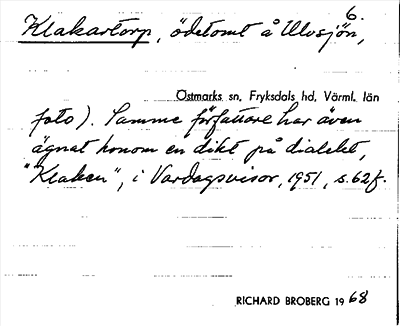 6.
Klakartorp, ödetomt å Ulvsjön,
Östmarks sn, Fryksdals hd, Värml. län
foto). Samme författare har även
ägnat honom en dikt på dialekt,
"Klaken", i Vardagsvisor, 1951, s. 62f.
RICHARD BROBERG 1968